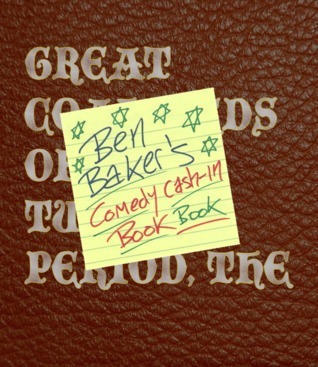 GREAT
OF
TU
PERIOD, THE
Ben
Baker's
Comedy Cash-in
Book Book